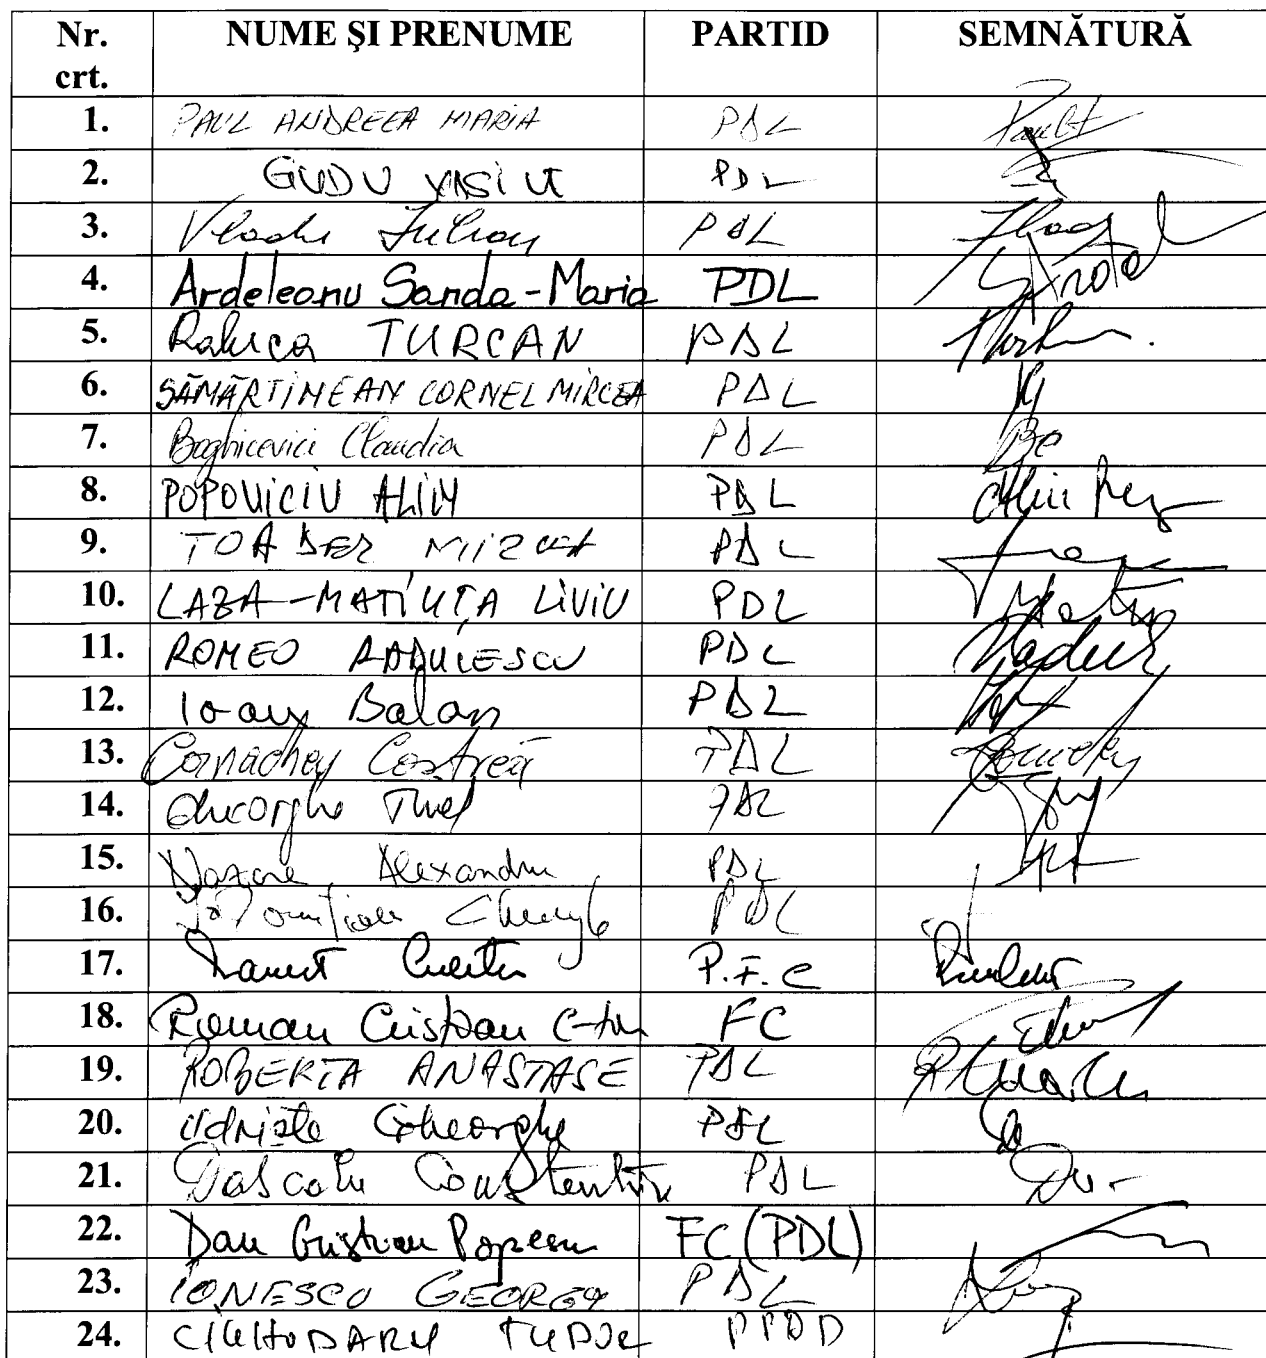 Nr. crt. NUME ŞI PRENUME PARTID SEMNĂTURĂ
1. PAUL ANDREEA MARIA PDL
2. GUDU VASILE PDL
3. Vladu Iulian PDL
4. Ardeleanu Sanda-Maria PDL
5. Raluca TURCAN PDL
6. SĂMĂRTINEAN CORNEL MIRCEA PDL
7. Boghicevici Claudia PDL
8. POPOVICIU ALIN PDL Alin
9. TOADER MIRCEA PDL
10. LAZA-MATIUȚA LIVIU PDL
11. ROMEO RADULESCU PDL
12. Ioan Balan PDL
13. Canacheu Costică PDL
14. Gheorghe Tinel PDL
15. Nazare Alexandru PDL
16. PDL
17. P.F.C
18. Roman Cristian C-tin FC
19. ROBERTA ANASTASE PDL
20. Udriște Gheorghe PDL
21. Dascalu Constantin PDL
22. Dan Cristian Popescu FC (PDL)
23. IONESCU GEORGE PDL
24. CIUHODARU TUDOR PPDD